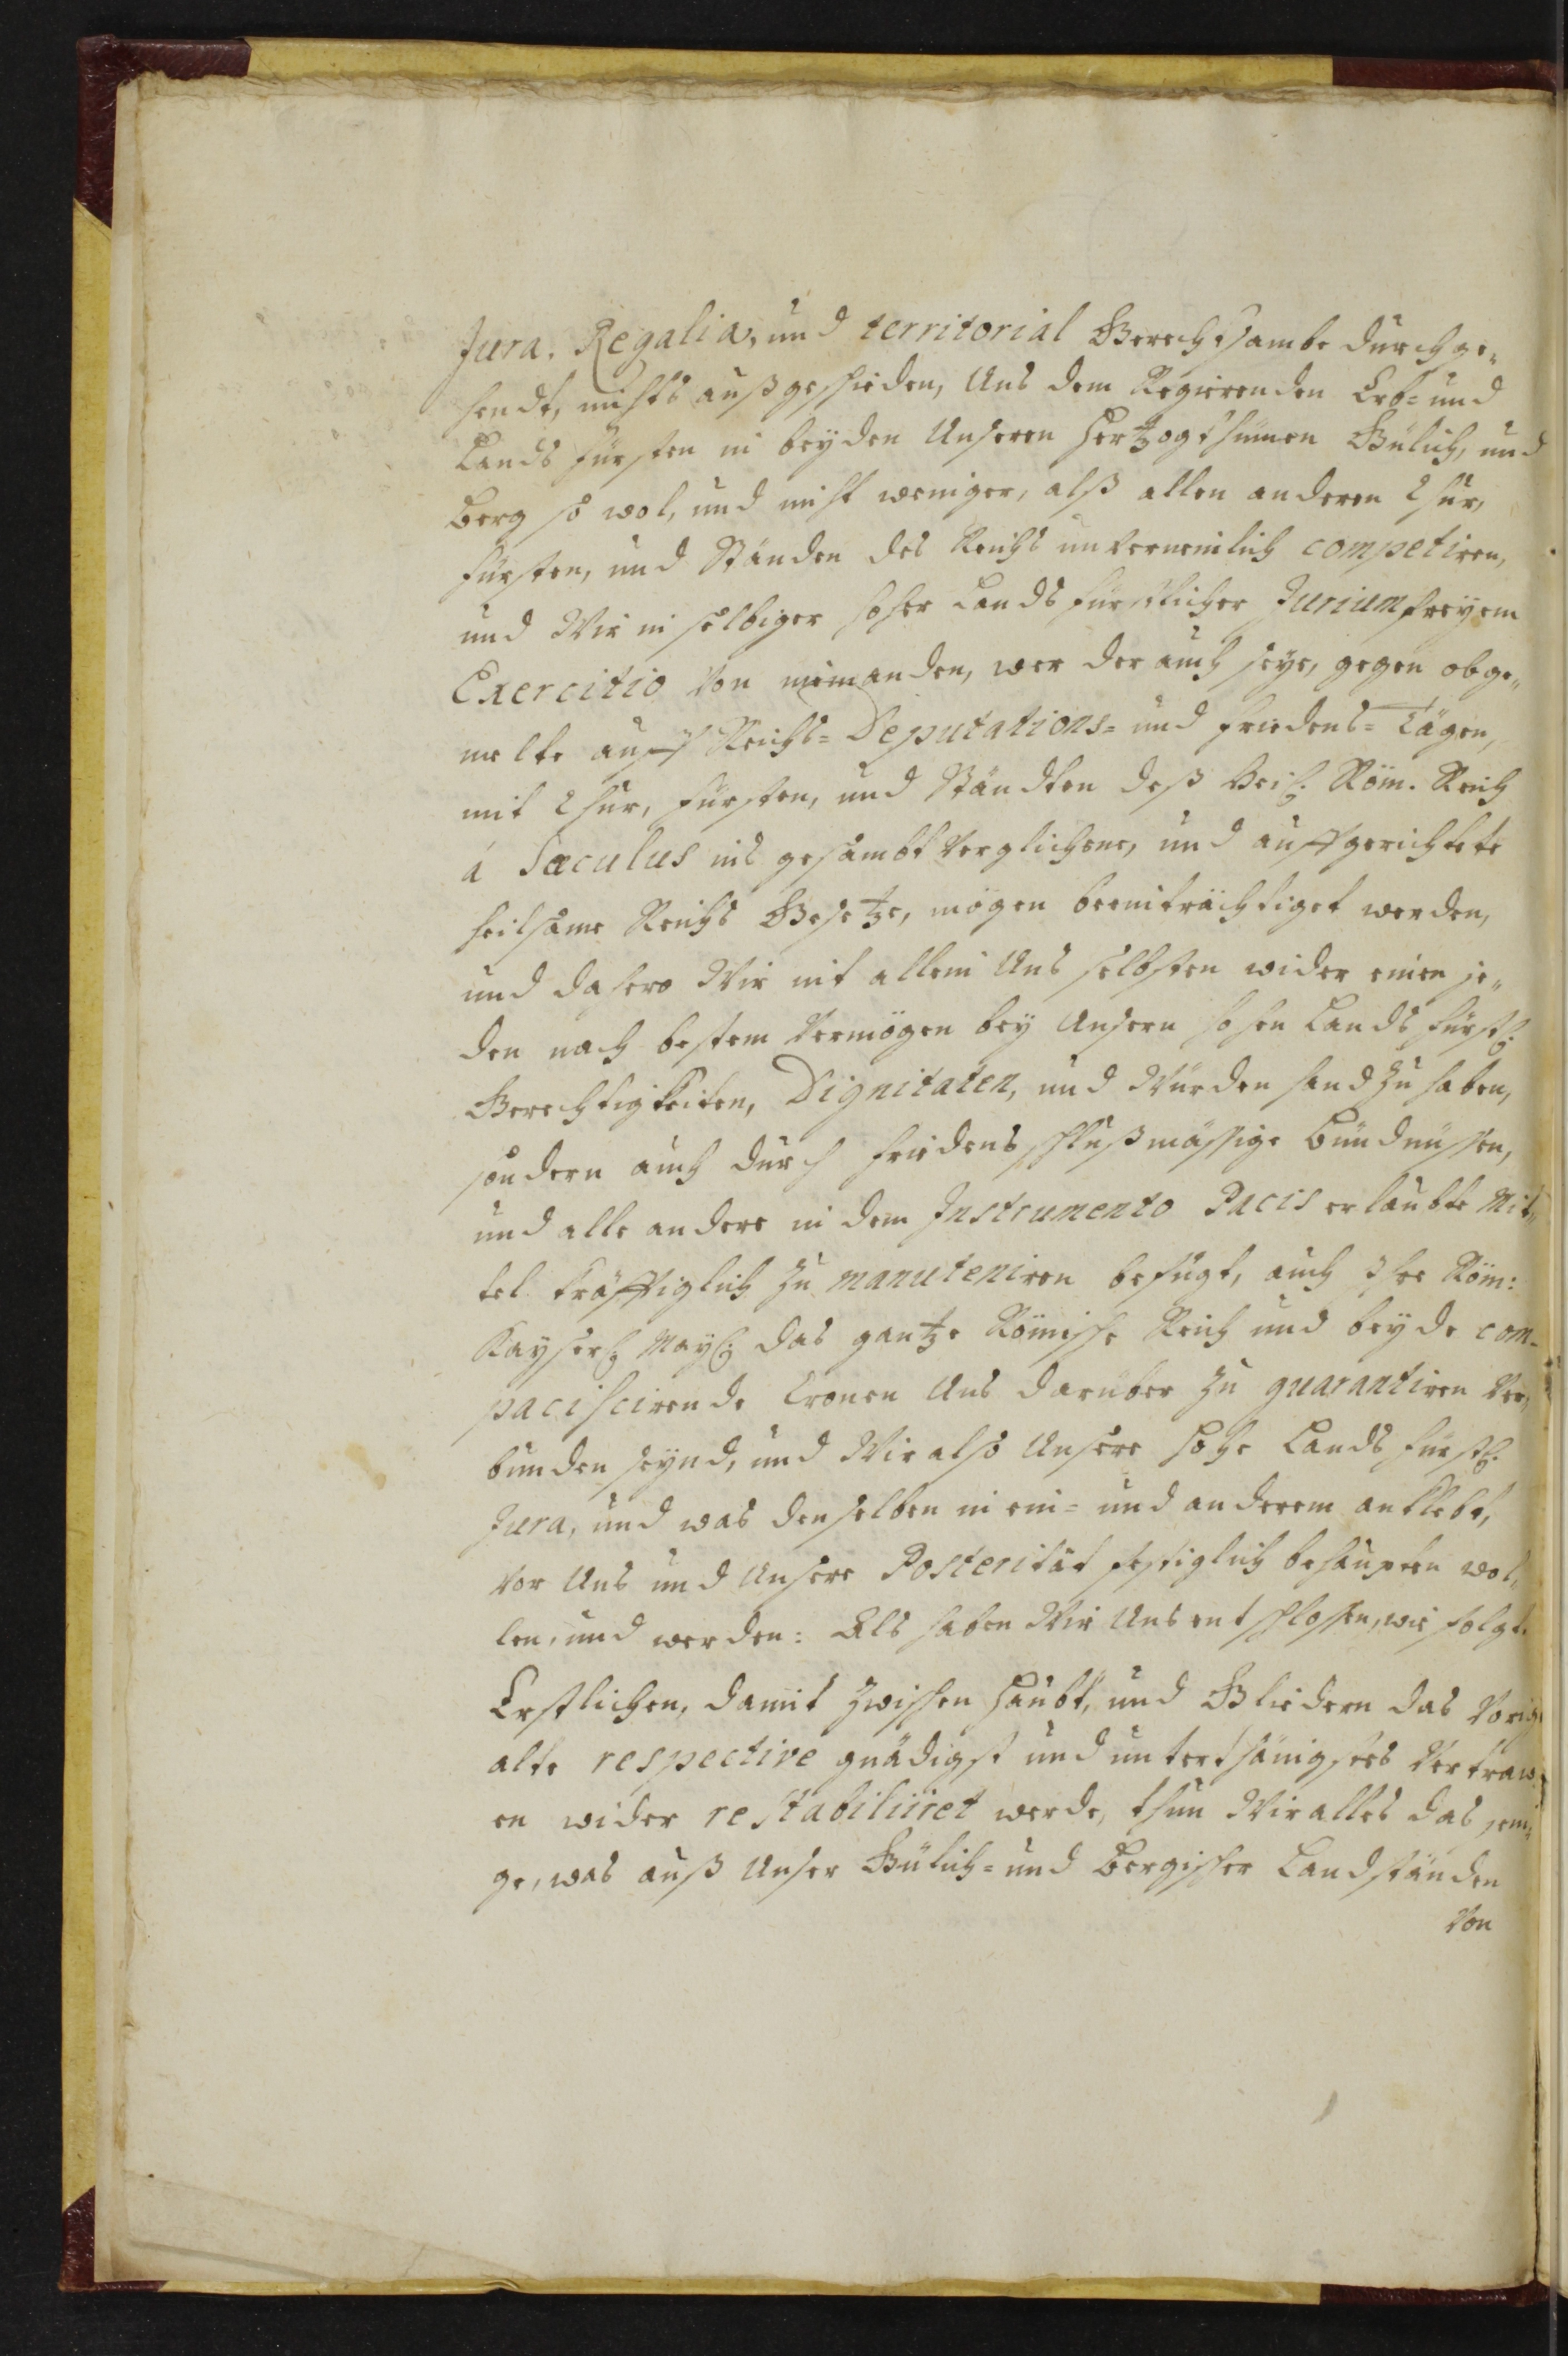 Jura, Regalia, und territorial Gerechtsambe durchge„
hendt, nichts außgeschieden, Uns dem Regierenden Erb- und
Lands Fürsten in beyden Unseren Hertzogthümen Gülich, und
Berg so wol, und nicht weniger, alß allen anderen Chur,
Fürsten, und Ständen des Reichs unverneinlich competiren,
und Wir in selbiger hoher Lands Fürstlicher Jurium freyem
Exercitio von niemanden, wer der auch seye, gegen obge„
melte auff Reichs- Deputations- und Friedens- Tägen,
mit Chur, Fürsten, und Ständten deß Heil. Röm. Reich
á Sæculus ins gesambt verglichene, und auffgerichtete
heilsame Reichs Gesetze, mögen beeinträchtiget werden,
und dahero Wir nit allein Uns selbsten wider einen je„
den nach bestem Vermögen bey Unsern hohen Lands Fürstl.
Gerechtigkeiten, Dignitaten, und Würden handzuhaben,
sondern auch durch Friedensschlußmässige Bündnüssen,
und alle andere in dem Instrumento Pacis erlaubte Mit„
tel kräfftiglich zu manuteniren befügt, auch Ihre Röm:
Kayserl. May. das gantze Römische Reich und beyde com-
pacifcirende Cronen Uns darüber zu guarantiren ver„
bunden seynd, und Wir also Unsere hohe Lands Fürstl.
Jura, und was denselben in ein- und anderem anklebt,
vor Uns und Unsere Posterität festiglich behaupten wol„
len, und werden: Als haben Wir Uns entschlossen, wie folgt.
Erstlichen, damit zwischen Haubt, und Gliedern das vorig
alte respective gnädigst und unterthänigstes Vertraw„
en wider restabiliiret werde, thun Wir alles das jeni„
ge, was auß Unser Gülich- und Bergischer Landständen
Von